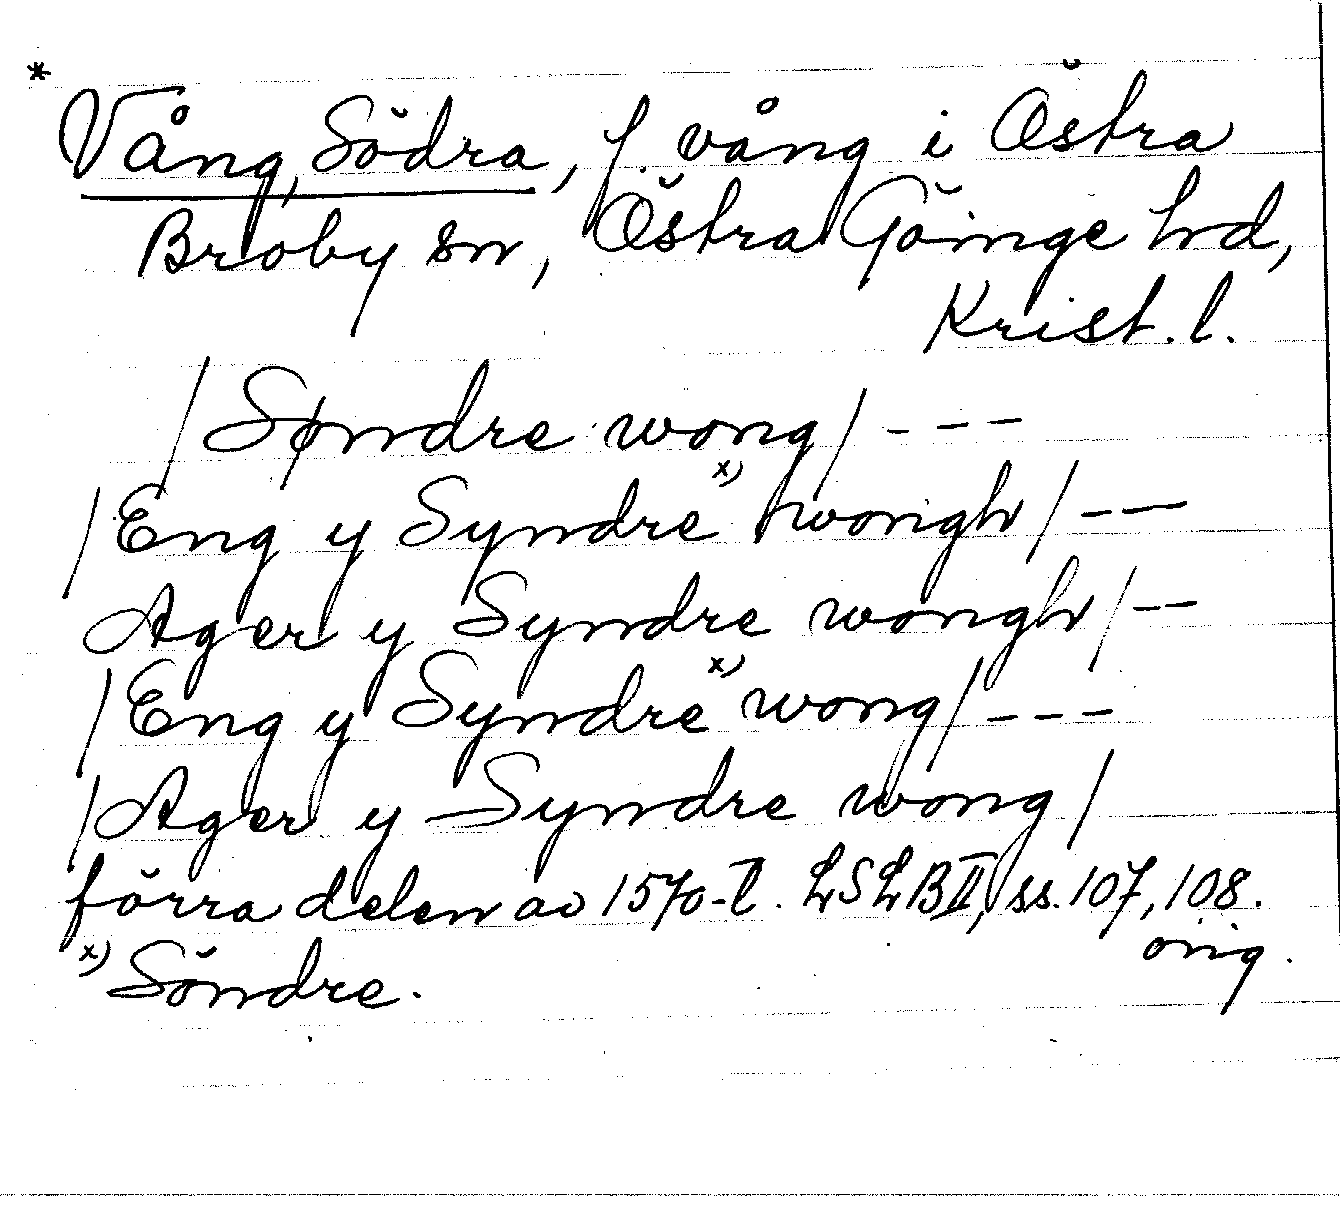 *
Vång, Södra, f. vång i Östra
Broby sn, Östra Göinge hd,
Krist. l.
/Søndre wong/ - - -
/Eng y Syndre x) wongh/ - -
Ager y Syndre wongh/ - -
/Eng y Syndre x) wong/ - - -
/Ager y Syndre wong/
förra delen av 1570-t. LSLB II, ss. 107, 108.
orig.
x) Söndre.